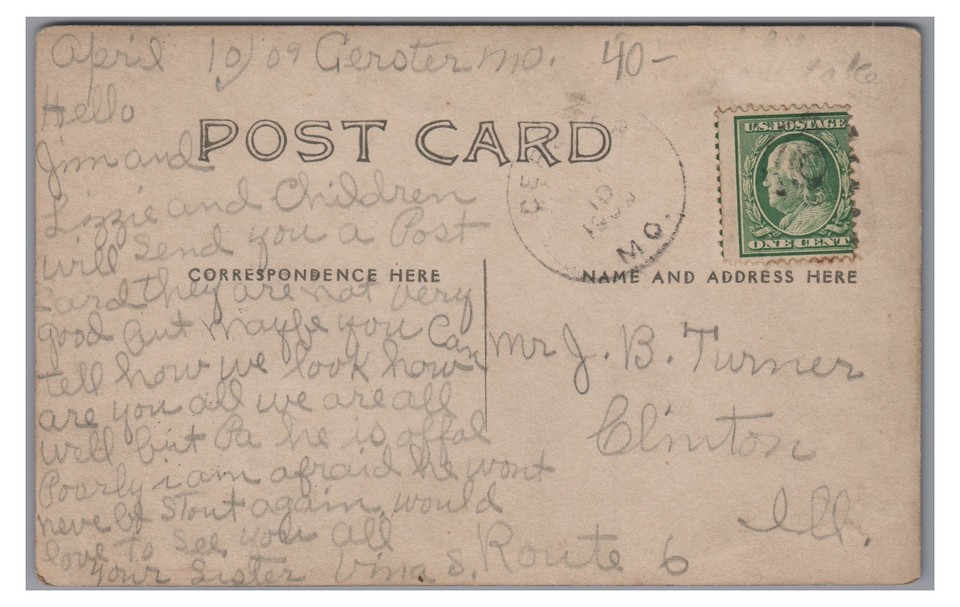 April 10/09 Gerster Mo. 40-
lake
Hello
POST CARD
U.S. POSTAGE
ONE CENT
10
MO.
Jim and
Lizzie and Children
will Send you a Post
CORRESPONDENCE HERE
NAME AND ADDRESS HERE
Card they are not very
good But maybe you Can
tell how we look how
are you all we are all
well but Pa he is offal
Poorly i am afraid he wont
neve by Stout again, would
love to see you all
your Sister Vina S.
Mr J. B. Turner
Clinton
Ill.
Route 6